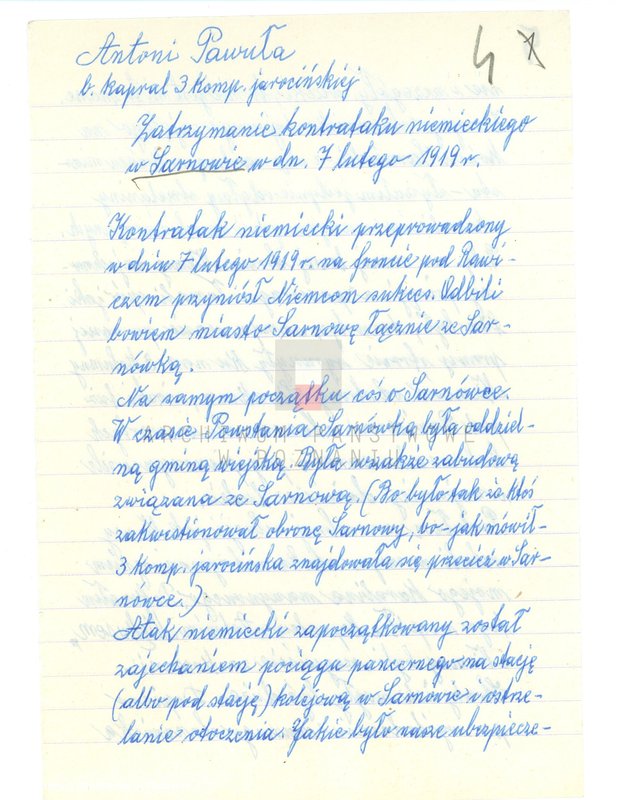 Antoni Pawuła
b. kapral 3 komp. jarocińskiej
Zatrzymanie kontrataku niemieckiego
w Sarnowie w dn. 7 lutego 1919 r.
Kontratak niemiecki przeprowadzony
w dniu 7 lutego 1919 r. na froncie pod Rawi-
czem przyniósł Niemcom sukces. Odbili
bowiem miasto Sarnowę łącznie ze Sar-
nówką.
Na samym początku coś o Sarnówce.
W czasie Powstania Sarnówka była oddziel-
ną gminą wiejską. Była wszakże zabudową
związana ze Sarnową. (Bo było tak że ktoś
zakwestionował obronę Sarnowy, bo - jak mówił -
3 komp. jarocińska znajdowała się przecież w Sar-
nówce.)
Atak niemiecki zapoczątkowany został
zajechaniem pociągu pancernego na stację
(albo pod stację) kolejową w Sarnowie i ostrze-
lanie otoczenia. Jakie było nasze ubezpiecze-
ARCHIWUM PAŃSTWOWE
W POZNANIU